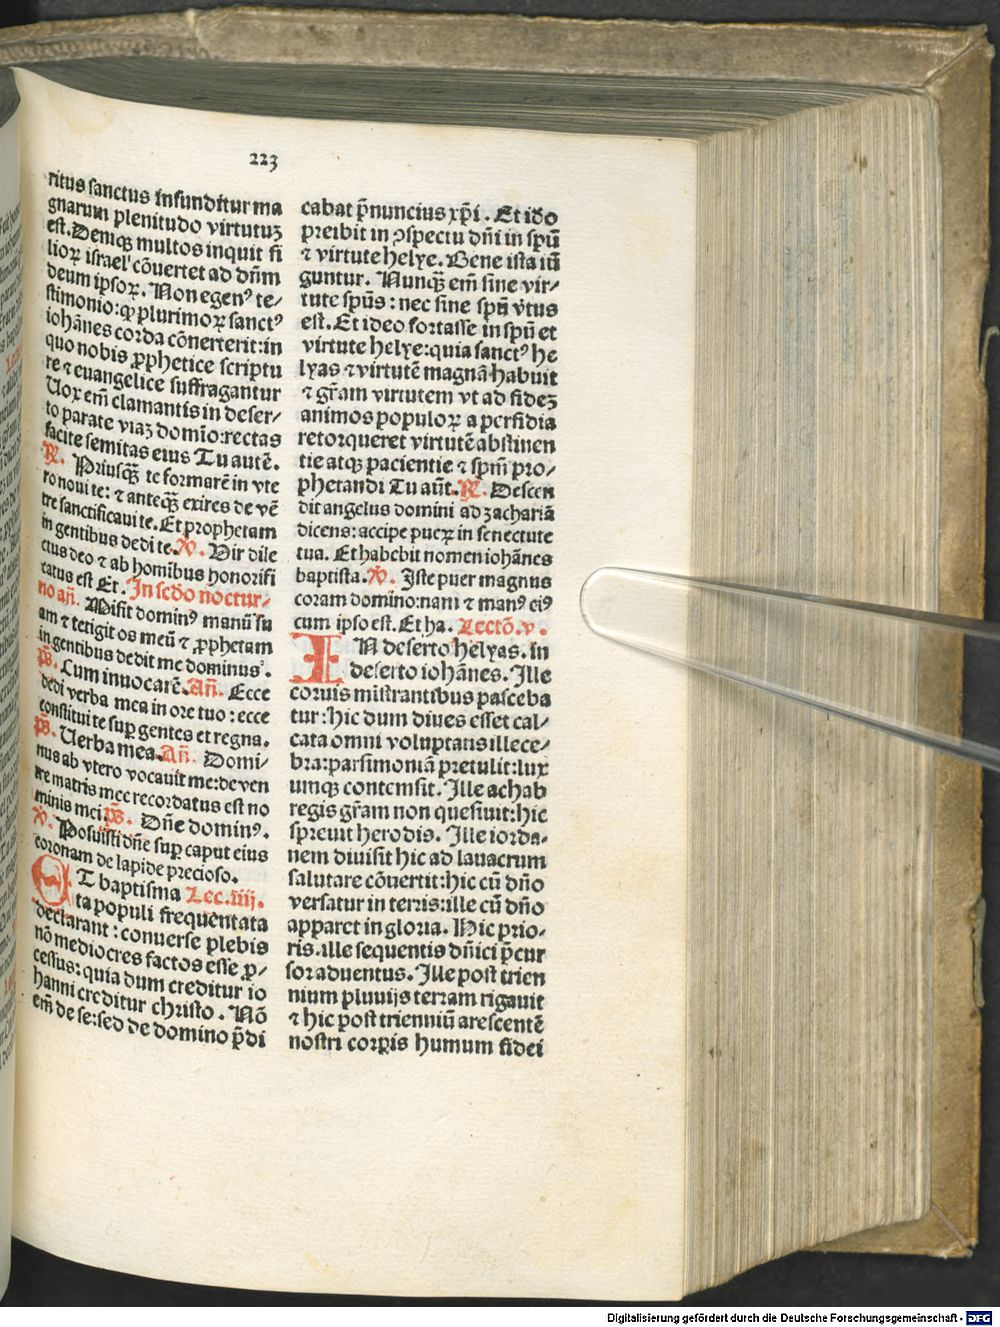 223
ritus sanctus infunditur ma
gnarum plenitudo virtutuʒ
est. Deniqꝫ multos inquit fi
lioꝝ israel' cõuertet ad dñm
deum ipsoꝝ. Non egenꝰ te/
stimonio: ꝙ plurimoꝝ sanctꝰ
iohãnes corda cõnerterit: in
quo nobis ꝓphetice scriptu
re ⁊ euangelice suffragantur
Uox em̃ clamantis in deser/
to parate viaʒ domĩo: rectas
facite semitas eius Tu autẽ.
℟. Priusqꝫ̃ te formarẽ in vte
ro noui te: ⁊ anteqꝫ̃ exires de vẽ
tre sanctificaui te. Et prophetam
in gentibus dedi te. ℣. Uir dile
ctus deo ⁊ ab homĩbus honorifi
catus est Et. In scđo noctur/
no añ. Misit dominꝰ manũ su
am ⁊ tetigit os meũ ⁊ ꝓphetam
in gentibus dedit me dominus.
p̃s. Cum inuocarẽ. Añ. Ecce
dedi verba mea in ore tuo: ecce
constitui te suꝑ gentes et regna.
p̃s. Uerba mea. Añ. Domi-
nus ab vtero vocauit me: de ven
tre matris mee recordatus est no
minis mei. p̃s. Dñe dominꝰ.
℣. Posuisti dñe suꝑ caput eius
coronam de lapide precioso.
UT baptisma Lec. iiij.
ta populi frequentata
declarant: conuerse plebis
nõ mediocres factos esse ꝓ/
cessus: quia dum creditur io
hanni creditur christo. Nõ
em̃ de se: sed de domino p̃di
cabat p̃nuncius xp̃i. Et iđo
preibit in ꝯspectu dñi in sp̃u
⁊ virtute helye. Bene ista iũ
guntur. Nunqꝫ̃ em̃ sine vir/
tute sp̃us: nec sine sp̃u v̾tus
est. Et ideo fortasse in sp̃u et
virtute helye: quia sanctꝰ he
lyas ⁊ virtutẽ magnã habuit
⁊ gr̃am virtutem vt ad fideʒ
animos populoꝝ a perfidia
retorqueret virtutẽ abstinen
tie atqꝫ pacientie ⁊ sp̃m pro/
phetandi Tu aũt. ℟. Descen
dit angelus domini ad zachariã
dicens: accipe pueꝝ in senectute
tua. Et habebit nomen iohãnes
baptista. ℣. Iste puer magnus
coram domino: nam ⁊ manꝰ eiꝰ
cum ipso est. Et ha. Lectõ. v.
IN deserto helyas. in
deserto iohãnes. Ille
coruis mĩstrantibus pasceba
tur: hic dum diues esset cal/
cata omni voluptatis illece/
bra: parsimoniã pretulit: lux
umqꝫ contemsit. Ille achab
regis gr̃am non quesiuit: hic
spreuit herodis. Ille iorda-
nem diuisit hic ad lauacrum
salutare cõuertit: hic cũ dño
versatur in terris: ille cũ dño
apparet in gloria. Hic prio-
ris. ille sequentis dñici p̃cur
sor aduentus. Ille post trien
nium pluuijs terram rigauit
⁊ hic post trienniũ arescentẽ
nostri corꝑis humum fidei
Digitalisierung gefördert durch die Deutsche Forschungsgemeinschaft - DFG